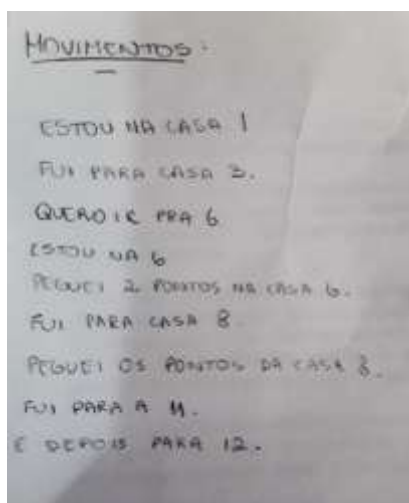 MOVIMENTOS:
ESTOU NA CASA 1
FUI PARA CASA 3.
QUERO IR PRA 6
ESTOU NA 6
PEGUEI 2 PONTOS NA CASA 6.
FUI PARA CASA 8.
PEGUEI OS PONTOS DA CASA 8.
FUI PARA A 11.
E DEPOIS PARA 12.